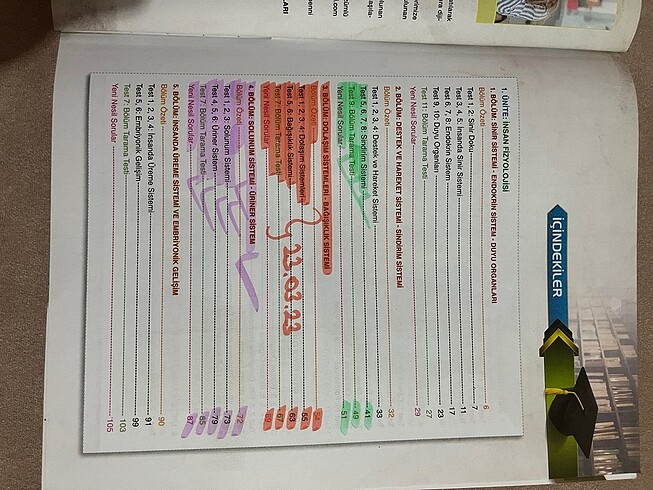 İÇİNDEKİLER
1. ÜNİTE: İNSAN FİZYOLOJİSİ
1. BÖLÜM: SİNİR SİSTEMİ - ENDOKRİN SİSTEM - DUYU ORGANLARI
Bölüm Özeti 6
Test 1, 2: Sinir Doku 7
Test 3, 4, 5: İnsanda Sinir Sistemi 11
Test 6, 7, 8: Endokrin Sistem 17
Test 9, 10: Duyu Organları 23
Test 11: Bölüm Tarama Testi 27
Yeni Nesil Sorular 29
2. BÖLÜM: DESTEK VE HAREKET SİSTEMİ - SİNDİRİM SİSTEMİ
Bölüm Özeti 32
Test 1, 2, 3, 4: Destek ve Hareket Sistemi 33
Test 5, 6, 7, 8: Sindirim Sistemi 41
Test 9: Bölüm Tarama Testi 49
Yeni Nesil Sorular 51
3. BÖLÜM: DOLAŞIM SİSTEMLERİ - BAĞIŞIKLIK SİSTEMİ
Bölüm Özeti 54
Test 1, 2, 3, 4: Dolaşım Sistemleri 55
Test 5, 6: Bağışıklık Sistemi 63
Test 7: Bölüm Tarama Testi 67
Yeni Nesil Sorular
23.03.23
4. BÖLÜM: SOLUNUM SİSTEMİ - ÜRİNER SİSTEM
Bölüm Özeti 72
Test 1, 2, 3: Solunum Sistemi 73
Test 4, 5, 6: Üriner Sistem 79
Test 7: Bölüm Tarama Testi 85
Yeni Nesil Sorular 87
5. BÖLÜM: İNSANDA ÜREME SİSTEMİ VE EMBRİYONİK GELİŞİM
Bölüm Özeti 90
Test 1, 2, 3, 4: İnsanda Üreme Sistemi 91
Test 5, 6: Embriyonik Gelişim 99
Test 7: Bölüm Tarama Testi 103
Yeni Nesil Sorular 105